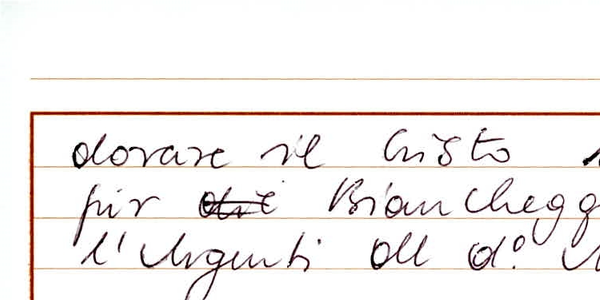 dorare il Cristo
per Biancheg
l'Argenti dll d.º